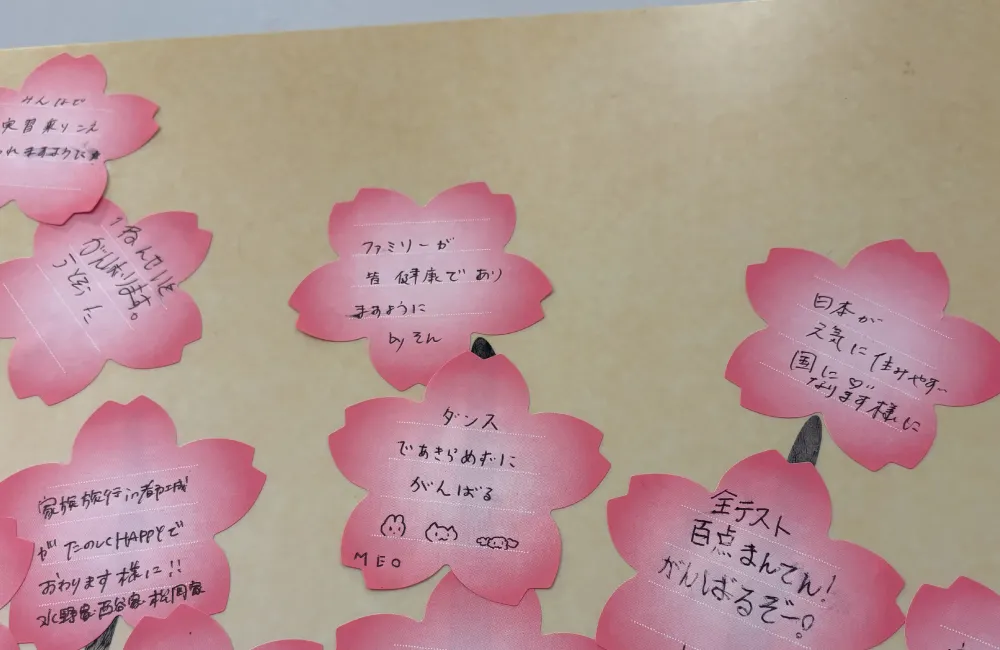 みんなで
実習乗りこえ
られますように
がんばります。
ファミリーが
皆健康であり
ますように
by そん
日本が
元気に住みやすい
国に♡
なります様に
ダンス
であきらめずに
がんばる
MEO
家族旅行in都城
がたのしくHAPPYで
おわります様に!!
水野家・西谷家・松岡家
全テスト
百点まんてん!
がんばるぞー!